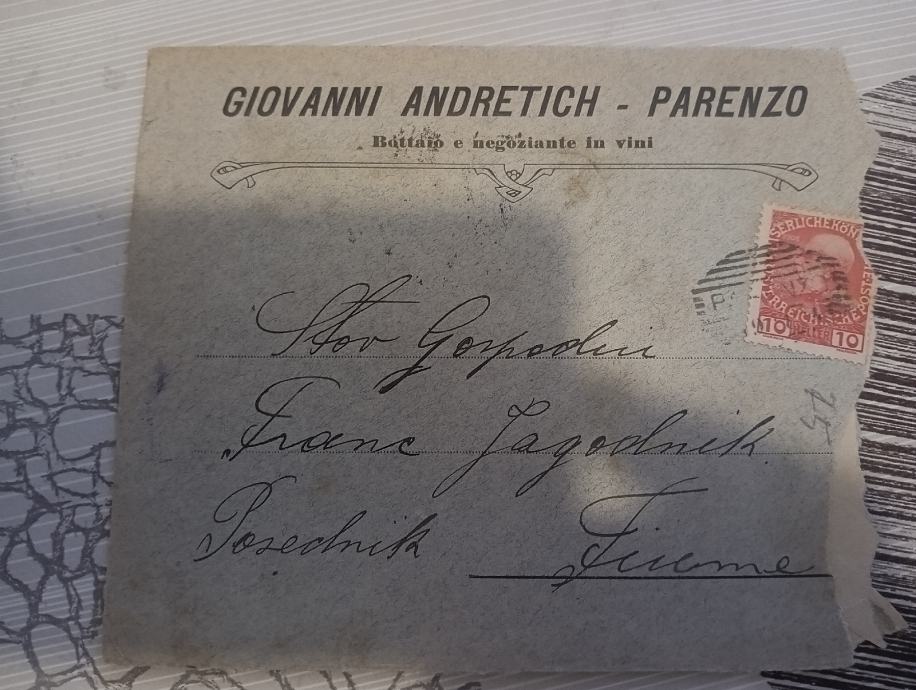 GIOVANNI ANDRETICH - PARENZO
Bottaio e negoziante in vini
SERLICHE KÖN
10 10
Stov Gospodin
Franc Jagodnik
Posednik Fiume
25